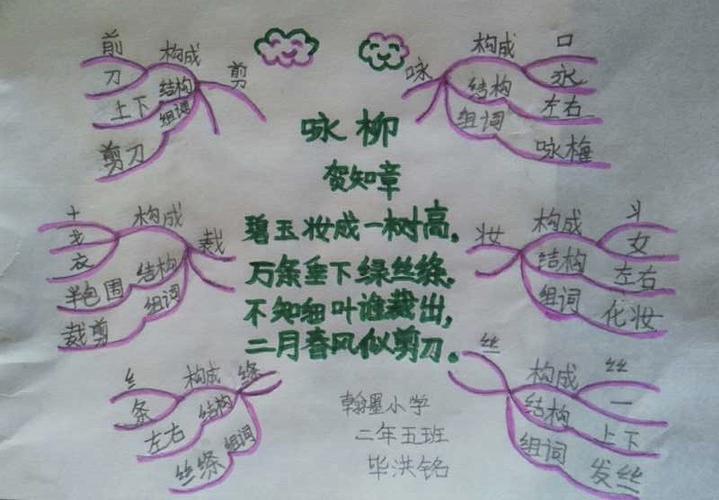 咏柳
贺知章
碧玉妆成一树高，
万条垂下绿丝绦。
不知细叶谁裁出，
二月春风似剪刀。
剪
构成
前
刀
结构
上下
组词
剪刀
咏
构成
口
永
结构
左右
组词
咏梅
裁
构成
十
戈
衣
结构
半包围
组词
裁剪
妆
构成
丬
女
结构
左右
组词
化妆
绦
构成
纟
条
结构
左右
组词
丝绦
丝
构成
丝
一
结构
上下
组词
发丝
翰墨小学
二年五班
毕洪铭